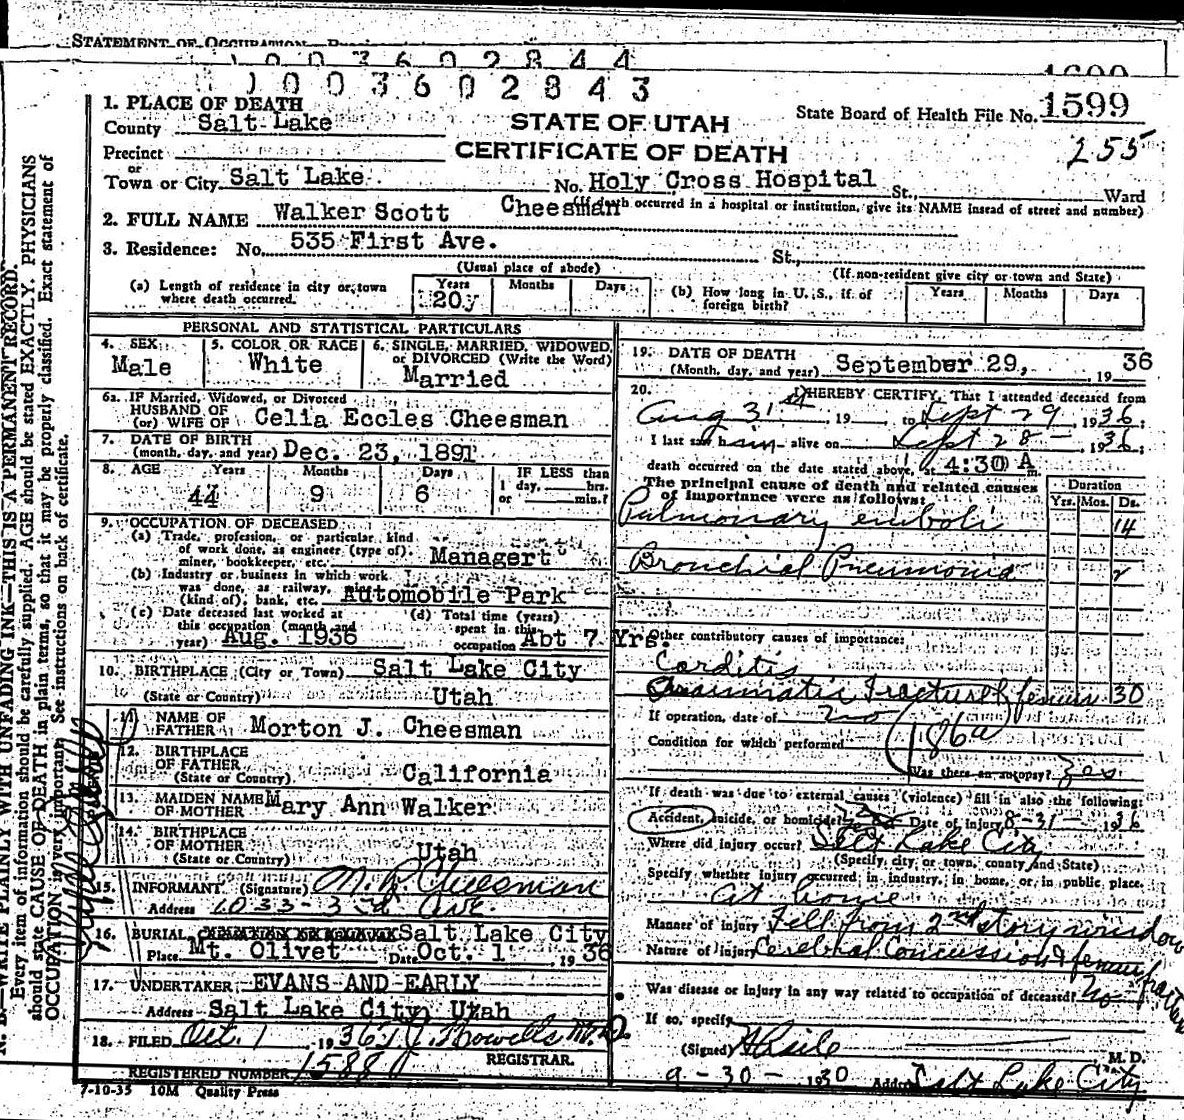 STATEMENT OF OCCUPATION
1003602844
1600
1003602843
1. PLACE OF DEATH
County Salt Lake
STATE OF UTAH
State Board of Health File No. 1599
Precinct
CERTIFICATE OF DEATH
255
or
Town or City Salt Lake No. Holy Cross Hospital St., Ward
(If death occurred in a hospital or institution, give its NAME insead of street and number)
2. FULL NAME Walker Scott Cheesman
3. Residence: No. 535 First Ave. St.,
(Usual place of abode) (If non-resident give city or town and State)
(a) Length of residence in city or town where death occurred. Years 20y Months Days
(b) How long in U. S., if of foreign birth? Years Months Days
PERSONAL AND STATISTICAL PARTICULARS
4. SEX Male
5. COLOR OR RACE White
6. SINGLE, MARRIED, WIDOWED, or DIVORCED (Write the Word) Married
6a. IF Married, Widowed, or Divorced
HUSBAND OF
(or) WIFE OF Celia Eccles Cheesman
7. DATE OF BIRTH
(month, day, and year) Dec. 23, 1891
8. AGE Years 44 Months 9 Days 6 IF LESS than 1 day, hrs. or min.?
9. OCCUPATION OF DECEASED
(a) Trade, profession, or particular kind
of work done, as engineer (type of),
miner, bookkeeper, etc. Managert
(b) Industry or business in which work
was done, as railway,
(kind of), bank, etc. Automobile Park
(c) Date deceased last worked at
this occupation (month and
year) Aug. 1936
(d) Total time (years)
spent in this
occupation Abt 7 Yrs.
10. BIRTHPLACE (City or Town) Salt Lake City
(State or Country) Utah
11. NAME OF
FATHER Morton J. Cheesman
12. BIRTHPLACE
OF FATHER
(State or Country) California
13. MAIDEN NAME
OF MOTHER Mary Ann Walker
14. BIRTHPLACE
OF MOTHER
(State or Country) Utah
15. INFORMANT (Signature) M. R. Cheesman
Address 1033-3rd Ave.
16. BURIAL Salt Lake City
Place Mt. Olivet Date Oct. 1, 1936
17. UNDERTAKER EVANS AND EARLY
Address Salt Lake City, Utah
18. FILED Oct. 1, 1936 T. J. Howells M.D.
REGISTRAR.
REGISTERED NUMBER 1588
7-10-35 10M Quality Press
19. DATE OF DEATH
(Month, day, and year) September 29, 1936
20. I HEREBY CERTIFY, That I attended deceased from
Aug 31st 19 , to Sept 29, 1936;
I last saw him alive on Sept 28 - 1936;
death occurred on the date stated above, at 4:30 A m.
The principal cause of death and related causes
of importance were as follows:
Duration
Yrs. Mos. Ds.
Pulmonary emboli 14
Bronchial Pneumonia 2
Other contributory causes of importance:
Carditis
Traumatic Fracture of femur 30
If operation, date of no
186a
Condition for which performed
Was there an autopsy? Yes
If death was due to external causes (violence) fill in also the following:
Accident, suicide, or homicide? Date of injury 8-31- 1936
Where did injury occur? Salt Lake City
(Specify city or town, county and State)
Specify whether injury occurred in industry, in home, or in public place.
at home
Manner of injury Fell from 2nd story window
Nature of injury Cerebral Concussion & femur fracture
Was disease or injury in any way related to occupation of deceased? No
If so, specify
(Signed) M. D.
9-30-1930 Address Salt Lake City
N. B.—WRITE PLAINLY WITH UNFADING INK—THIS IS A PERMANENT RECORD.
Every item of information should be carefully supplied. AGE should be stated EXACTLY. PHYSICIANS
should state CAUSE OF DEATH in plain terms, so that it may be properly classified. Exact statement of
OCCUPATION is very important. See instructions on back of certificate.